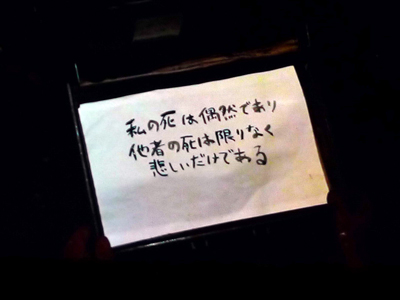 私の死は偶然であり
他者の死は限りなく
悲しいだけである